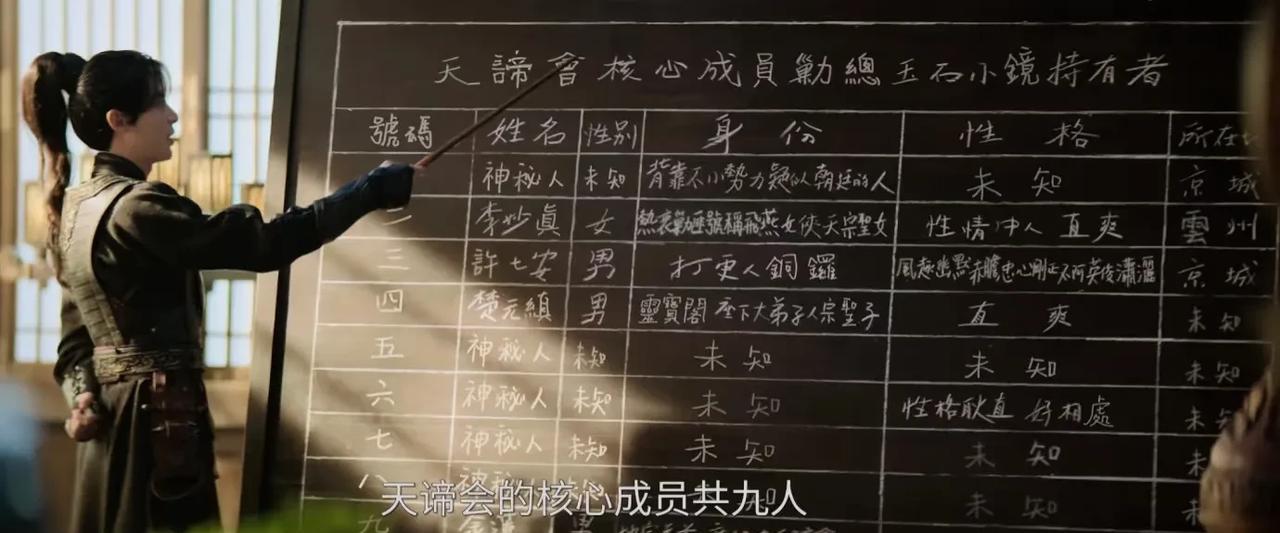 天諦會核心成員勳總玉石小鏡持有者
號碼 姓名 性別 身份 性格 所在
神秘人 未知 背靠不小勢力疑似朝廷的人 未知 京城
二 李妙真 女 號稱飛燕女俠天宗聖女 性情中人 直爽 雲州
三 許七安 男 打更人銅鑼 風趣幽默赤膽忠心剛正不阿英俊瀟灑 京城
四 楚元縝 男 靈寶閣 座下大弟子人宗聖子 直爽 未知
五 神秘人 未知 未知 未知 未知
六 神秘人 未知 未知 性格耿直 好相處 未
七 神秘人 未知 未知 未知 未
八 神秘 知 未知
九 男
天谛会的核心成员共九人